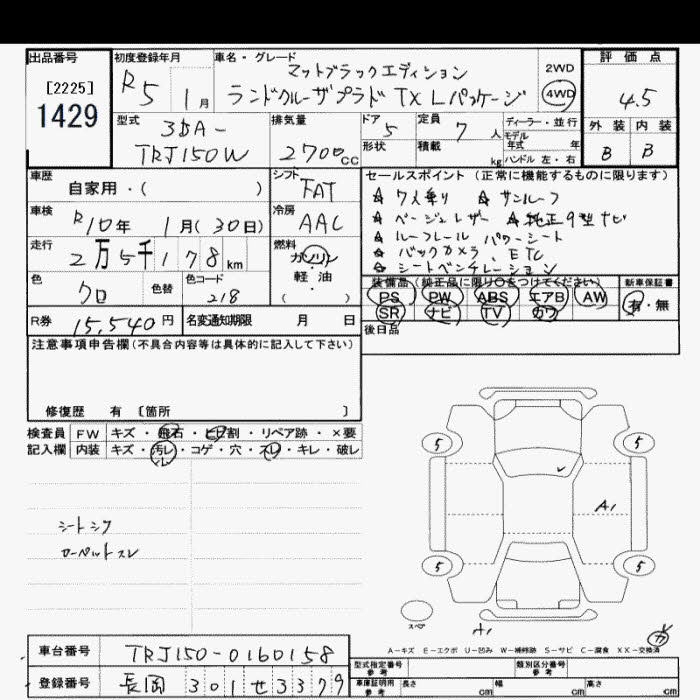 出品番号
[2225]
1429
初度登録年月
R5 1月
車名・グレード
マットブラックエディション
ランドクルーザプラド TX Lパッケージ
2WD
4WD
評価点
4.5
外装 内装
B B
型式
3BA-
TRJ150W
排気量
2700cc
ドア 5
形状
定員 7人
積載 kg
ディーラー・並行
モデル年式 年
ハンドル 左・右
車歴
自家用・( )
シフト
FAT
セールスポイント (正常に機能するものに限ります)
☆ 7人乗り ☆ サンルーフ
☆ ベージュレザー ☆ 純正9型ナビ
☆ ルーフレール パワーシート
☆ バックカメラ、ETC
☆ シートベンチレーション
車検
R10年 1月(30日)
冷房
AAC
走行
2万5千178km
燃料
ガソリン
軽・油
( )
色
クロ
色替
色コード
218
装備品 (純正品に限り○をつけてください)
PS PW ABS エアB AW
SR ナビ TV カワ
新車保証書
有・無
R券 15,540円
名変通知期限 月 日
後日品
注意事項申告欄(不具合内容等は具体的に記入して下さい)
修復歴 有 〔箇所 〕
検査員
記入欄
FW キズ・飛石・ヒビ割・リペア跡・×要
内装 キズ・汚レ・コゲ・穴・スレ・キレ・破レ
シートシワ
カーペットスレ
5 5
A1
5 5
スペア
A1
カ
A-キズ E-エクボ U-凹み W-補修跡 S-サビ C-腐食 XX-交換済
車台番号 TRJ150-0160158
登録番号 長岡 301 せ 3379
型式指定番号 参考
類別区分番号 参考
車庫証明用 参考
長さ cm 幅 cm 高さ cm